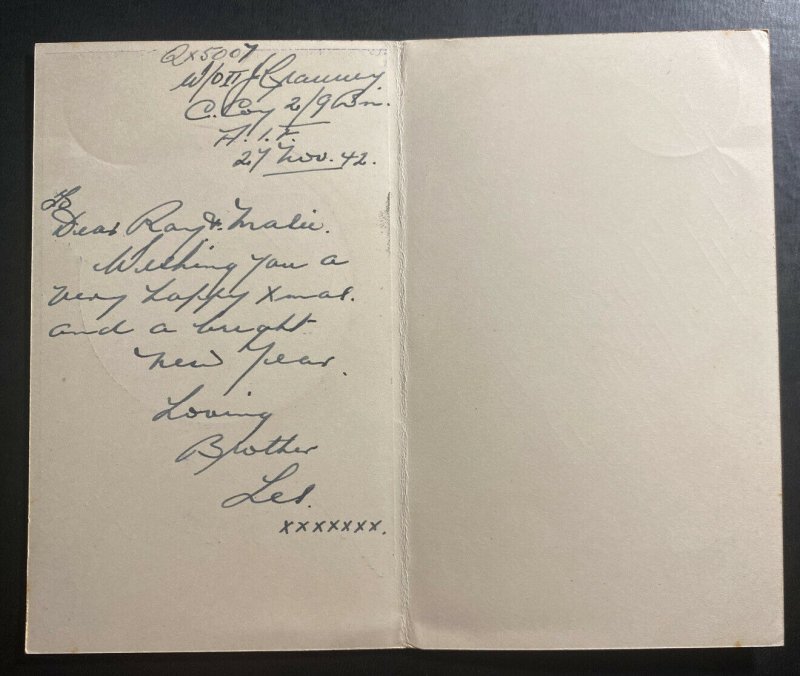 QX5007
W/O II J Granney
C. Coy 2/9 Bn.
A.I.F.
27 Nov. 42.
To
Dear Ray &
Wishing you a
very happy Xmas.
and a bright
new year.
Loving
Brother
Les.
xxxxxxx.